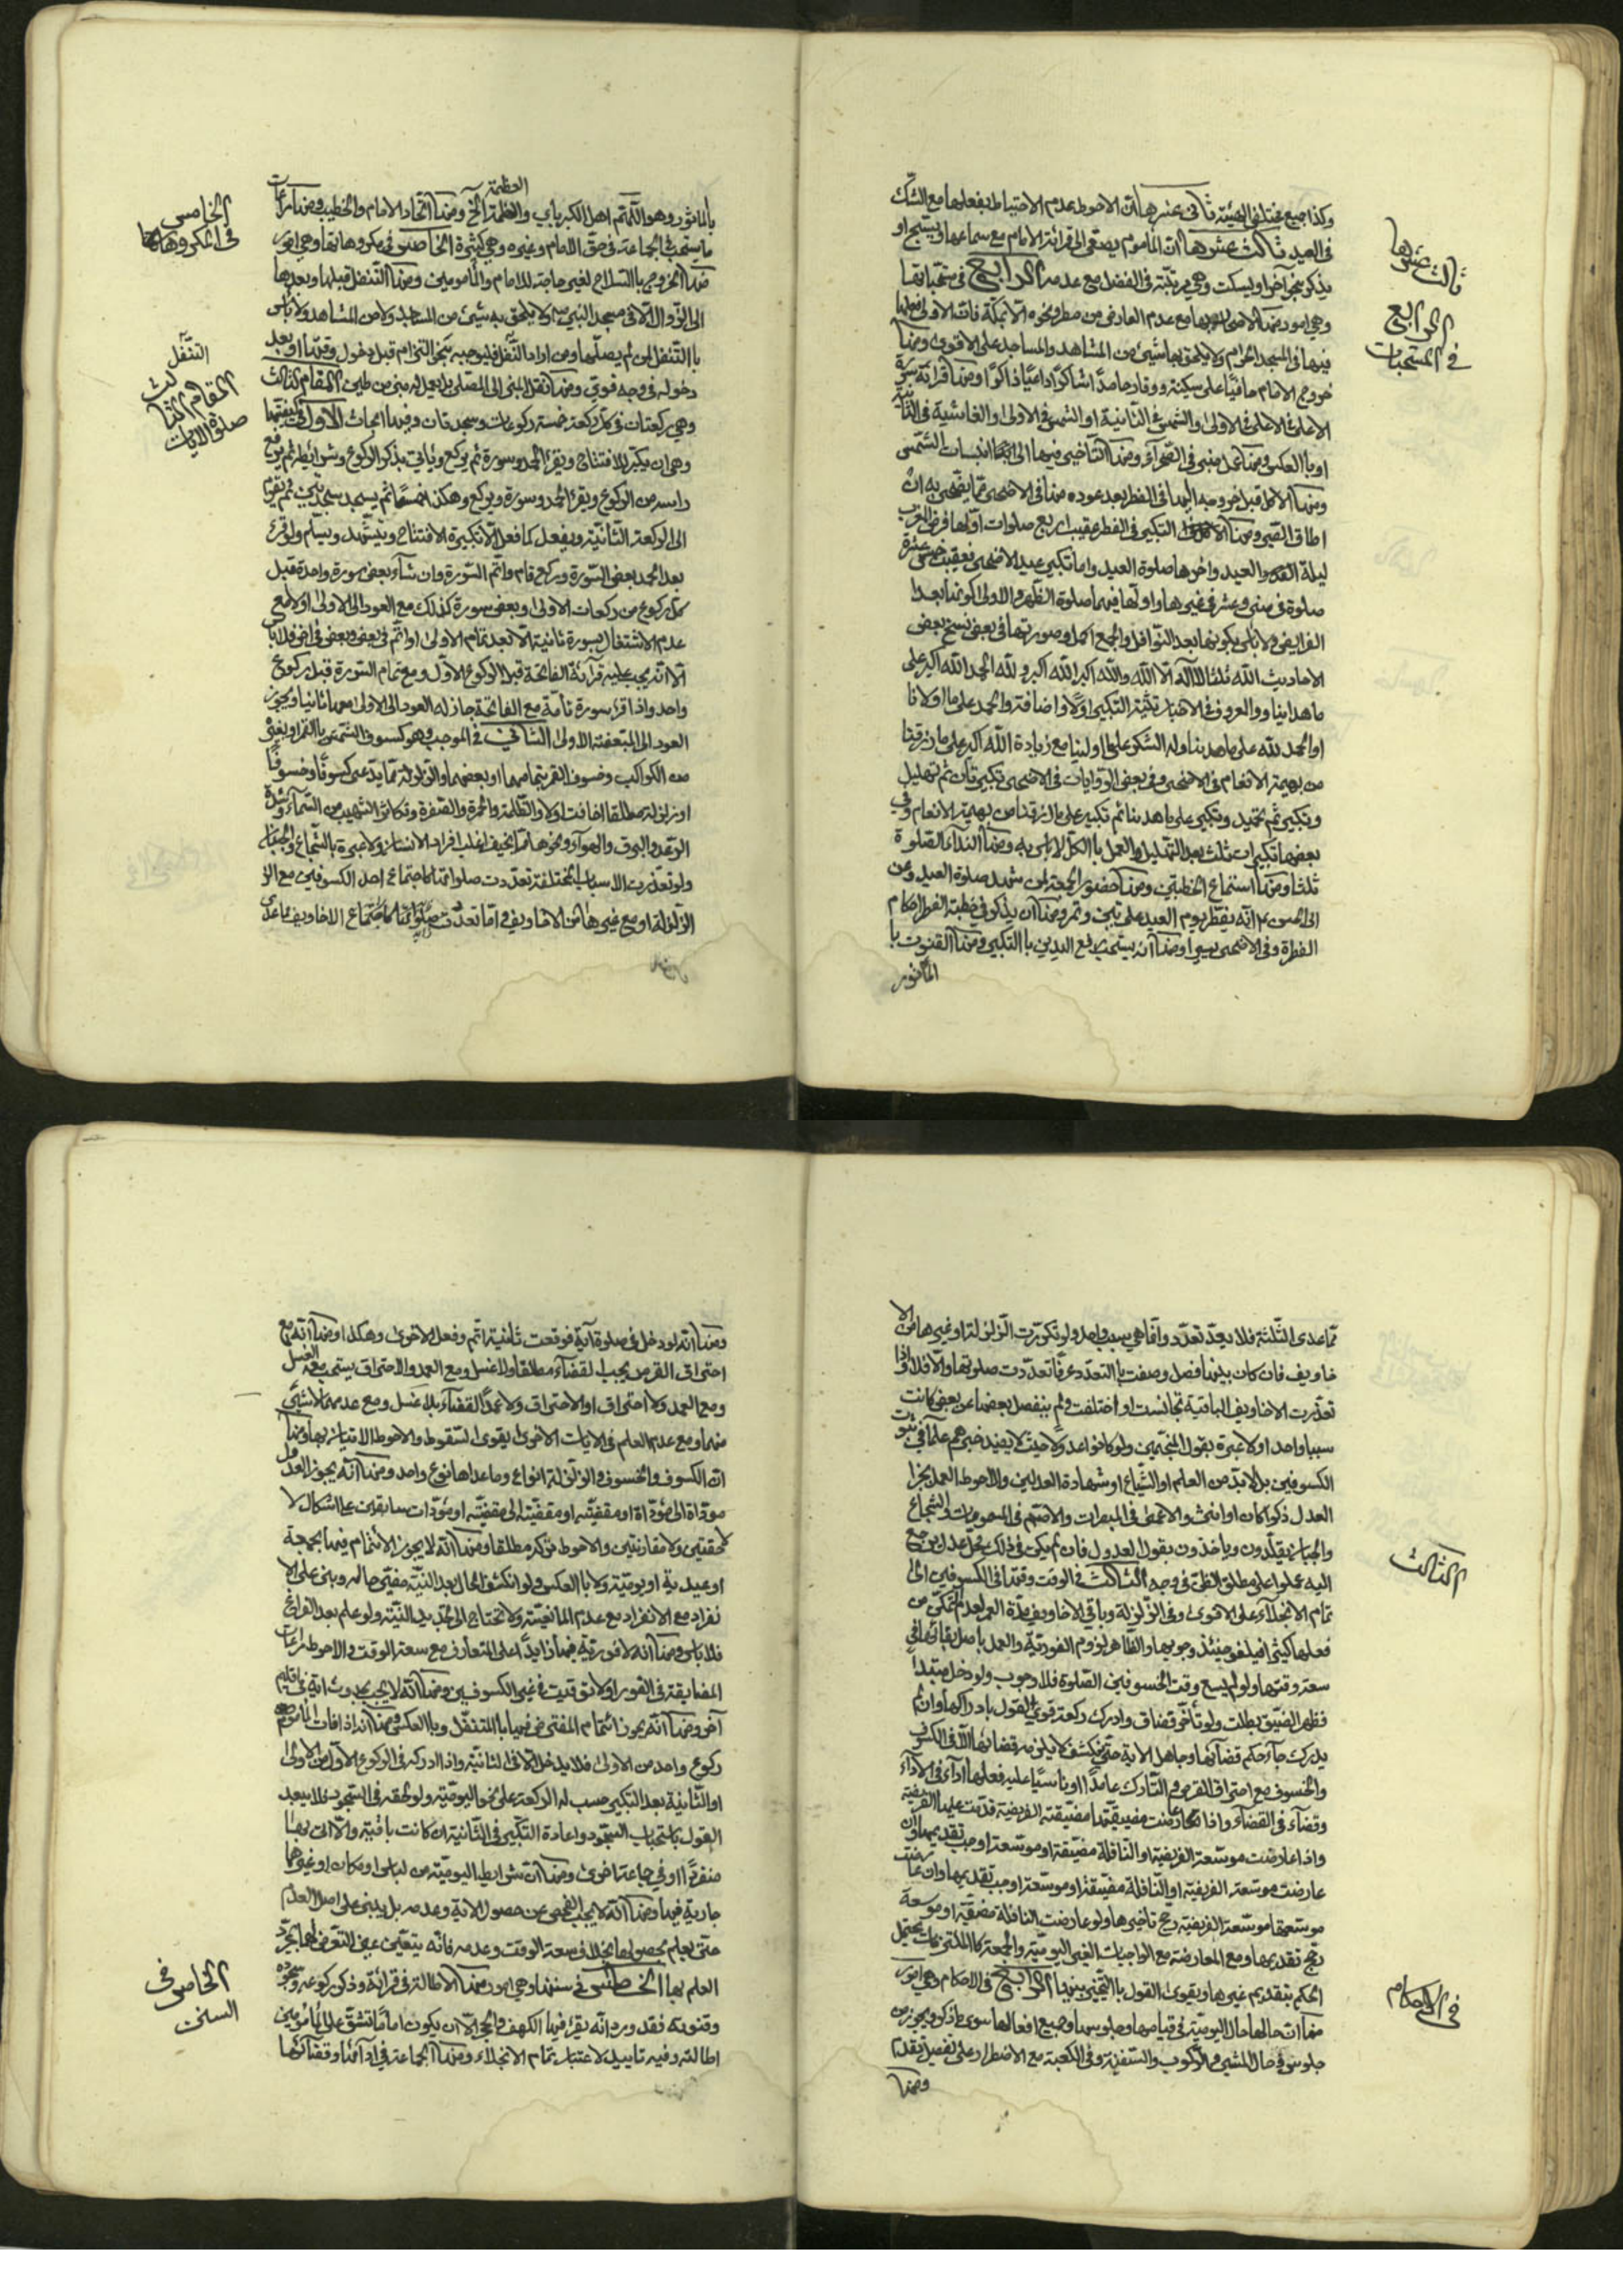 وكذا جميع مختلفي الهيئة ثاني عشرها انّ الاحوط عدم الاحتياط بفعلها مع الشكّ
في العيد ثالث عشرها انّ الماموم يصغي الى قرائة الامام مع سماعها ويسبّح او
يذكر بنحو آخر او يسكت وهي مرتّبة في الفضل مع عدمه الرابع في مستحبّاتها
وهي امور منها الاصحار بها مع عدم العارض من مطر ونحوه الّا بمكّة فانّ الاولى فعلها
فيها في المسجد الحرام ولا يلحق بها شيئ من المشاهد والمساجد على الاقوى ومنها
خروج الامام حافيًا على سكينة ووقار حامدًا شاكرًا داعيًا ذاكرًا ومنها قرائة سورة
الاعلى في الاولى والشمس في الثانية او الشمس في الاولى والغاشية في الثانية
او بالعكس ومنها
ومنها الاكل قبل خروجه اليها في الفطر وبعد عوده منها في الاضحى ممّا يضحّي به ان
اطاق ومنها التكبير في الفطر عقيب اربع صلوات اوّلها فرض المغرب
ليلة العيد واخرها صلوة العيد واما تكبير عيد الاضحى فعقيب خمس عشرة
صلوة في منى وعشر في غيرها واولها فيهما صلوة الظهر والاولى كونها بعد
الفرايض ولا باس بكونها بعد النوافل والجمع اكمل وصورتها في بعض نسخ بعض
الاحاديث الله ثلثا لا اله الّا الله والله اكبر الله اكبر ولله الحمد الله اكبر على
ما هدانا والمعروف في الاخبار تثنية التكبير اوّلًا واضافة والحمد على ما اولانا
او الحمد لله على ما هدينا وله الشكر على ما اولينا مع زيادة الله اكبر على ما رزقنا
من بهيمة الانعام في الاضحى وفي بعض الروايات في الاضحى تكبيرتان ثم تهليل
وتكبير ثم تحميد وتكبير على ما هدينا ثم تكبير على ما رزقنا من بهيمة الانعام وفي
بعضها تكبيرات ثلث بعد التهليل والعمل بالكلّ لا باس به ومنها النداء الصلوة
ثلثا ومنها استماع الخطبتين ومنها حضور الجمعة لمن شهد صلوة العيد وعن
ابي الحسن انّه يفطر يوم العيد على تين وتمر ومنها ان يذكر في خطبة الفطر احكام
الفطرة وفي الاضحى ومنها انه يستحب رفع اليدين بالتكبير ومنها القنوت با
المأثور
ثالث عشرها
الرابع
في المستحبات
العظمة
بالماثور وهو اللّهم اهل الكبرياء والعظمة الخ ومنها اتّحاد الامام والخطيب ومنها مراعات
ما يستحب في الجماعة في حق الامام وغيره وهي كثيرة الخامس في مكروهاتها وهي امور
منها الخروج بالسلاح لغير حاجة للامام والمأمومين ومنها التنفل قبلها وبعدها
الى الزوال الّا في مسجد النبي ولا يلحق به شيئ من المساجد ولا من المشاهد ولا باس
بالتنفل لمن لم يصلّها ومن اراد التنفّل فليوجبه بنحو التزام قبل دخول وقتها او بعد
دخوله في وجه قويّ ومنها نقل المنبر الى المصلّى بل يعمل له منبر من طين المقام الثالث
وهي ركعتان في كلّ ركعة خمسة ركوعات وسجدتان وفيها ابحاث الاوّل في كيفيّتها
وهي ان يكبّر للافتتاح ويقرء الحمد وسورة ثم يركع ويأتي بذكر الركوع وشرايطه ثم يرفع
راسه من الركوع ويقرء الحمد وسورة ويركع وهكذا خمسًا ثم يسجد سجدتين ثم يقوم
الى الركعة الثانية ويفعل كما فعل الّا تكبيرة الافتتاح ويتشهّد ويسلّم ولو قرء
بعد الحمد بعض السّورة وركع قام واتمّ السّورة وان شاء بعض سورة واحدة قبل
كلّ ركوع من ركعات الاولى وبعض سورة كذلك مع العود الى الاولى او لا مع
عدم الاشتغال بسورة ثانية الّا بعد تمام الاولى او اتمّ في بعض وبعض في اخر فلا باس
الّا انّه يجب عليه قرائة الفاتحة قبل الركوع الاوّل ومع تمام السّورة قبل ركوع
واحد واذا قرء سورة تامّة مع الفاتحة جاز له العود الى الاولى معها ثانيا ويجوز
العود الى المبعّضة الاولى الثاني في الموجب وهو كسوف الشّمس بالقمر او بغيره
من الكواكب وخسوف القمر بتمامهما او بعضهما والزلزلة ممّا يدعى كسوفًا وخسوفًا
او زلزلة مطلقا اخافت او لا والظلمة والحمرة والصّفرة وتكاثر الشهب من السّماء وشدة
الرّعد والبرق والهواء ونحوها ممّا يخيف اغلب افراد الانسان ولا عبرة بالشّجاع والجبان
ولو تعدّدت الاسباب المختلفة تعدّدت صلواتها كاجتماع احد الكسوفين مع الز
الزلزلة او مع غيرها من الاخاويف اما تعدّدت كاجتماع الاخاويف ما عدى
الخامس
في المكروهاتها
التنفّل
المقام الثالث
صلوة الايات
ممّا عدى الثلثة فلا يعدّ تعدّد وانّما هي سبب واحد ولو تكرّرت الزلزلة او غيرها من الا
خاويف فان كان بينها فصل وصفت بالتعدّد عرفًا تعدّدت صلوتها والّا فلا واذا
تعدّدت الاخاويف الباقية تجانست او اختلفت ولم ينفصل بعضها عن بعض كانت
سببا واحدا ولا عبرة بقول المنجّمين ولو كانوا عدولا حيث لا يفيد خبرهم علمًا في ثبوت
الكسوفين بل لا بدّ من العلم او الشّياع او شهادة العدلين والاحوط العمل بخبر
العدل ذكرًا كان او انثى والاعمى في المبصرات والاصمّ في المسموعات والشجاع
والجبان يقلّدون وياخذون بقول العدول فان لم يكن في ذلك محلّ عدل يرجع
اليه عملوا على مطلق الظنّ في وجه الثالث في الوقت وقتها في الكسوفين الى
تمام الانجلاء على الاقوى وفي الزّلزلة وباقي الاخاويف مدّة العمر لعدم التمكّن من
فعلها كثيرًا فيلغو حينئذ وجوبها والظاهر لزوم الفوريّة والعمل باصل بقائها في
سعة وقتها ولو لم يسع وقت الخسوفين الصّلوة فلا وجوب ولو دخل مبتدأ
فظهر الضيق بطلت ولو تأخّر فضاق وادرك ركعة قوي القول بادراكها وان لم
يدرك جاء حكم قضائها وجاهل الاية حتى تنكشف لا يلزمه قضائها الّا في الكسوف
والخسوف مع احتراق القرص والتّارك عامدًا او ناسيًا عليه فعلها اداء في الاداء
وقضاء في القضاء واذا تعارضت مضيقتها مضيّقة الفريضة قدّمت عليها الفريضة
واذا عارضت موسّعة الفريضة او النافلة مضيّقة او موسّعة او جب تقديمها وان
عارضت موسّعة الفريضة او النّافلة مضيّقة او موسّعة او جب تقديمها وان عارضت
موسّعتها موسّعة الفريضة رجح تاخيرها ولو عارضت النافلة مضيّقة او موسعة
رجح تقديمها ومع المعارضة مع الواجبات الغير اليوميّة والجمعة كالملتزمات يحتمل
الحكم بتقديم غيرها ويقوى القول بالتّخيير بينها الرابع في الاحكام وهي امور
منها انّ حالها حال اليوميّة في قيامها وجلوسها وجميع افعالها سوى ما ذكر ويجوز من
جلوس في حال المشي والرّكوب والسّفينة وفي الكعبة مع الاضطرار وعلى تفصيل تقدم
ومنها
الثالث
في الاحكام
ومنها انّه لو دخل في صلوة آية فوقعت ثانية اتم وفعل الاخرى وهكذا ومنها انّه مع
احتراق القرص يجب القضاء مطلقا ولا غسل ومع العمد والاحتراق يستحب معه الغسل
ومع العمد ولا احتراق او الاحتراق ولا عمدًا القضاء بلا غسل ومع عدمهما لا شيئ
منهما ومع عدم العلم في الايات الاخرى يقوى السّقوط والاحوط الاتيان بها ومنها
انّ الكسوف والخسوف والزلزلة انواع وما عداها نوع واحد ومنها انّه يجوز العدول
مودّاة الى مؤدّاة او مقضيّة او مقضيّة الى مقضيّة او مؤدّات سابقين على اشكال لا
لاحقتين ولا مقارنتين والاحوط تركه مطلقا ومنها انّه لا يجوز الائتمام فيها بجمعة
او عيديّة او يوميّة ولا بالعكس ولو انكشف الحال بعد النيّة مضى على حاله وبنى على الا
نفراد مع الانفراد مع عدم المانعيّة ولا تحتاج الى تجديد النيّة ولو علم بعد الفراغ
فلا باس ومنها انّه لا فوريّة فيها زايدًا على المتعارف مع سعة الوقت والاحوط مراعات
المضايقة في الفور ولا توقيت في غير الكسوفين ومنها انّه لا يجب بحدوث اية في اقليم
آخر ومنها انّه يجوز ائتمام المفترض فيها بالمتنفّل وبالعكس ومنها انّه اذا فات الماموم
ركوع واحد من الاولى فلا يدخل الّا في الثانية واذا ادركه في الركوع الاوّل من الاولى
او الثّانية بعد التكبير حسب له الركعة على نحو اليوميّة ولو لحقه في السّجود فلا يبعد
القول باستحباب السّجود واعادة التكبير في الثّانية ان كانت باقية والّا اتى بها
منفردًا او في جماعة اخرى ومنها انّ شرايط اليوميّة من لباس او مكان او غيرهما
جارية فيها ومنها انّه لا يجب الفحص عن حصول الاية وعدمه بل يبنى على اصل العدم
حتى يعلم بحصولها بخلاف سعة الوقت وعدمه فانّه يتعيّن عليه التعرّض لها بمجرّد
العلم بها الخامس في سننها وهي امور منها الاطالة في قرائة وذكر ركوعه وسجوده
وقنوته فقد ورد انّه يقرء فيها الكهف والحجر الّا ان يكون امامًا تشقّ على المأمومين
اطالته وفيه تاييد لاعتبار تمام الانجلاء ومنها الجماعة في ادائها وقضائها
الخامس في
السنن